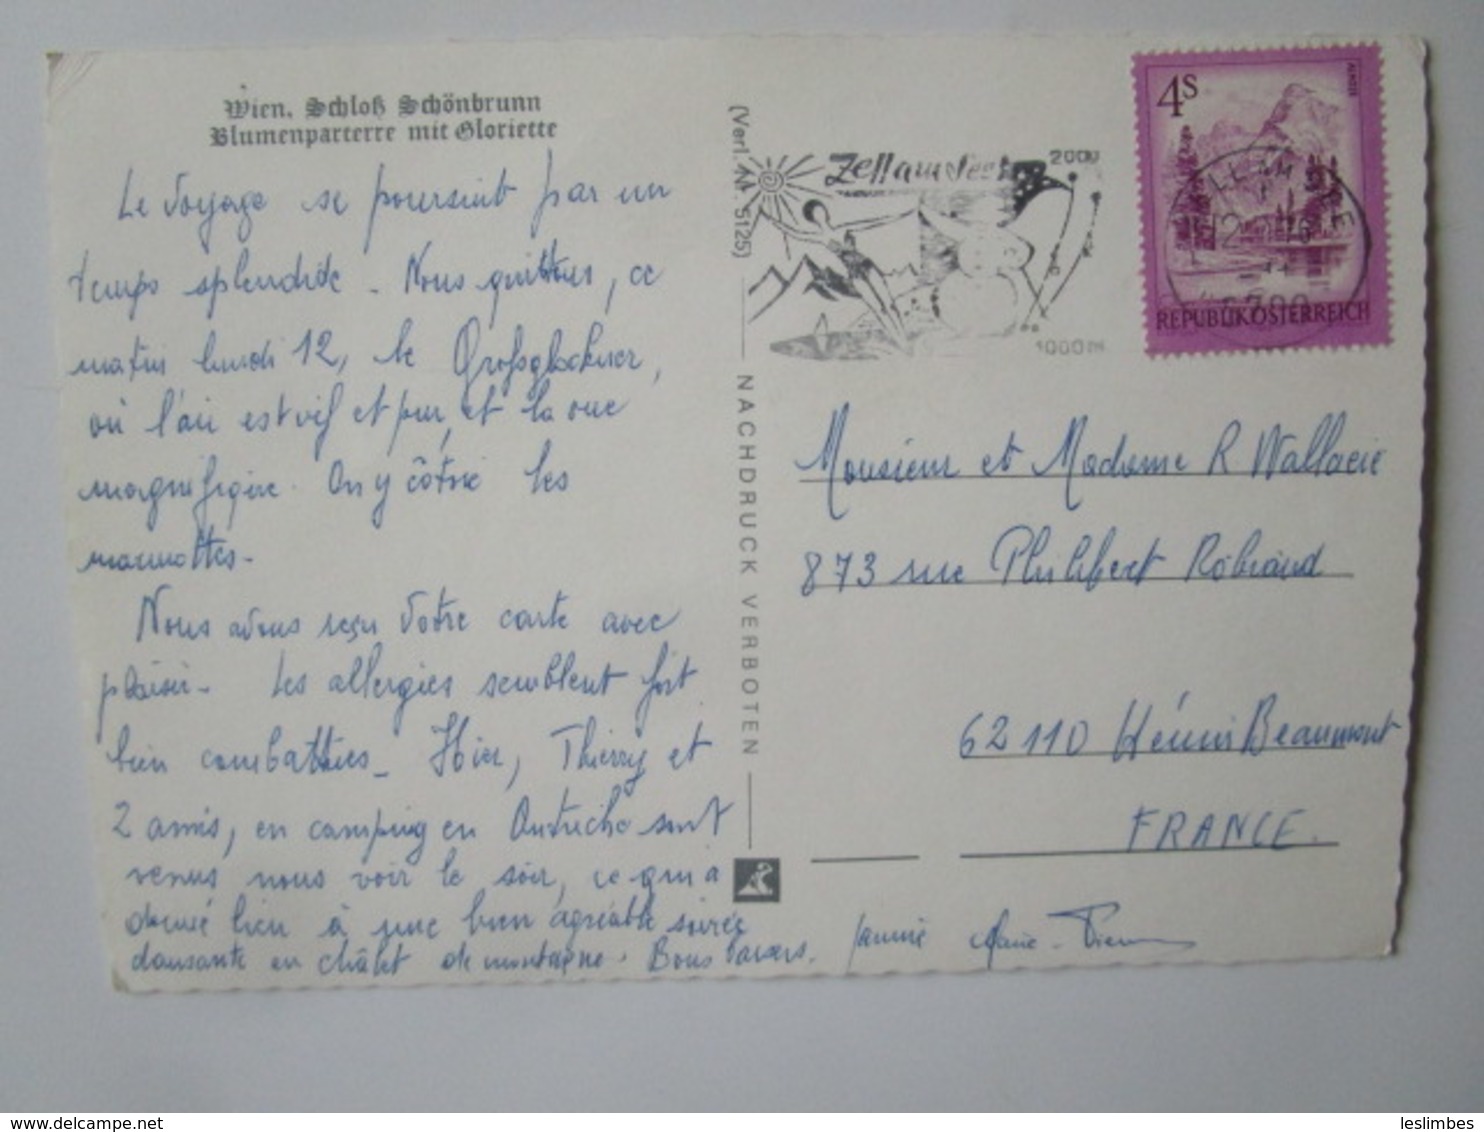 Wien, Schloß Schönbrunn
Blumenparterre mit Gloriette
Le voyage se poursuit par un
temps splendide - Nous quittons, ce
matin lundi 12, le Großglockner,
où l'air est vif et pur, et la vue
magnifique. On y côtoie les
marmottes -
Nous avons reçu votre carte avec
plaisir - Les allergies semblent fort
bien combattues - Hier, Thierry et
2 amis, en camping en Autriche sont
venus nous voir le soir, ce qui a
donné lieu à une bien agréable soirée
dansante en châlet de montagne. Bons baisers.
Jannie Marie-Pierre
(Verl. Nr. 5125)
NACHDRUCK VERBOTEN
Zell am See
2000
1000 m
4S
ALMSEE
ZELL AM SEE
REPUBLIK ÖSTERREICH
Monsieur et Madame R Wallaeie
873 rue Philibert Robiaud
62110 Hénin Beaumont
FRANCE.
leslimbes